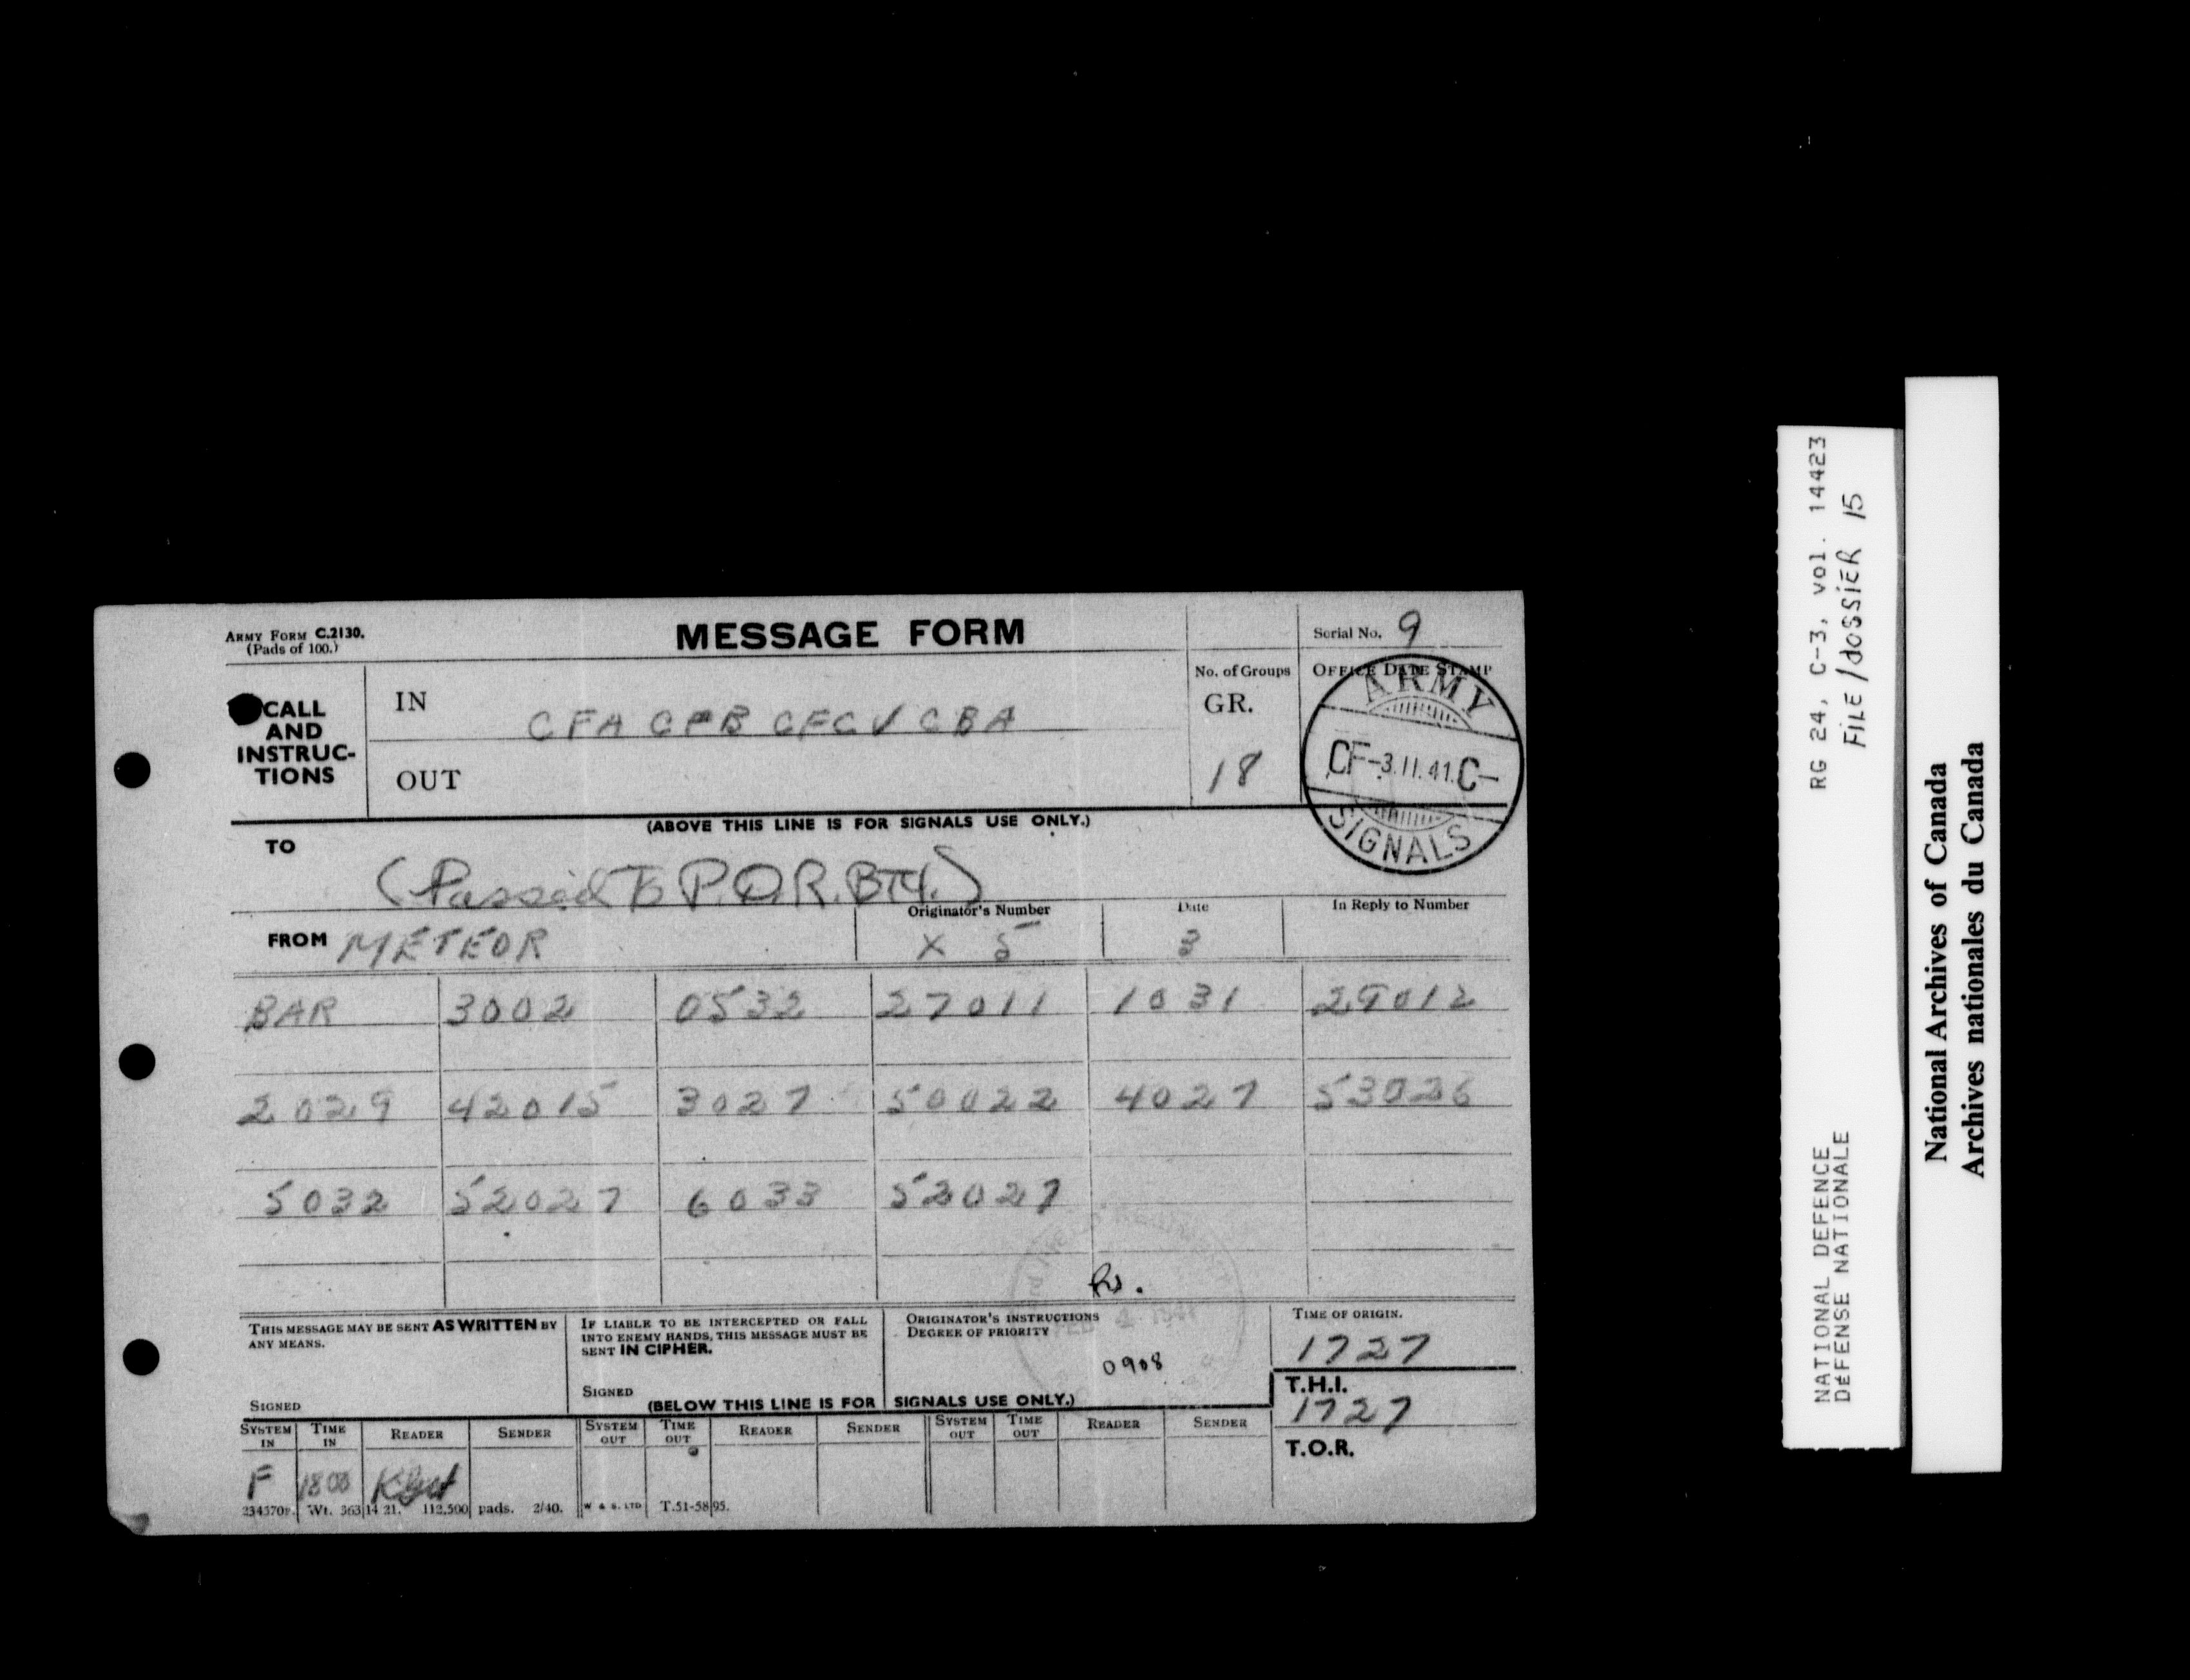 ARMY FORM C.2130.
(Pads of 100.)
MESSAGE FORM
Serial No. 9
CALL AND INSTRUC-TIONS
IN
CFA CFB CFC V CBA
OUT
No. of Groups
GR.
18
OFFICE DATE STAMP
ARMY
CF-3.II.41.C-
SIGNALS
(ABOVE THIS LINE IS FOR SIGNALS USE ONLY.)
TO
(Passed To P.O.R. BTY.)
FROM METEOR
Originator's Number
X 5
Date
3
In Reply to Number
BAR 3002 0532 27011 1031 29012
2029 42015 3027 50022 4027 53026
5032 52027 6033 52027
THIS MESSAGE MAY BE SENT AS WRITTEN BY
ANY MEANS.
SIGNED
IF LIABLE TO BE INTERCEPTED OR FALL
INTO ENEMY HANDS, THIS MESSAGE MUST BE
SENT IN CIPHER.
SIGNED
ORIGINATOR'S INSTRUCTIONS
DEGREE OF PRIORITY
0908
TIME OF ORIGIN.
1727
T.H.I.
1727
T.O.R.
(BELOW THIS LINE IS FOR SIGNALS USE ONLY.)
SYSTEM IN TIME IN READER SENDER SYSTEM OUT TIME OUT READER SENDER SYSTEM OUT TIME OUT READER SENDER
F 1800
Wt. 363 14 21. 112,500 pads. 2/40. W & S. LTD T.51-5895.
RG 24, C-3, vol. 14423
FILE/dOSSIER 15
NATIONAL DEFENCE
DÉFENSE NATIONALE
National Archives of Canada
Archives nationales du Canada